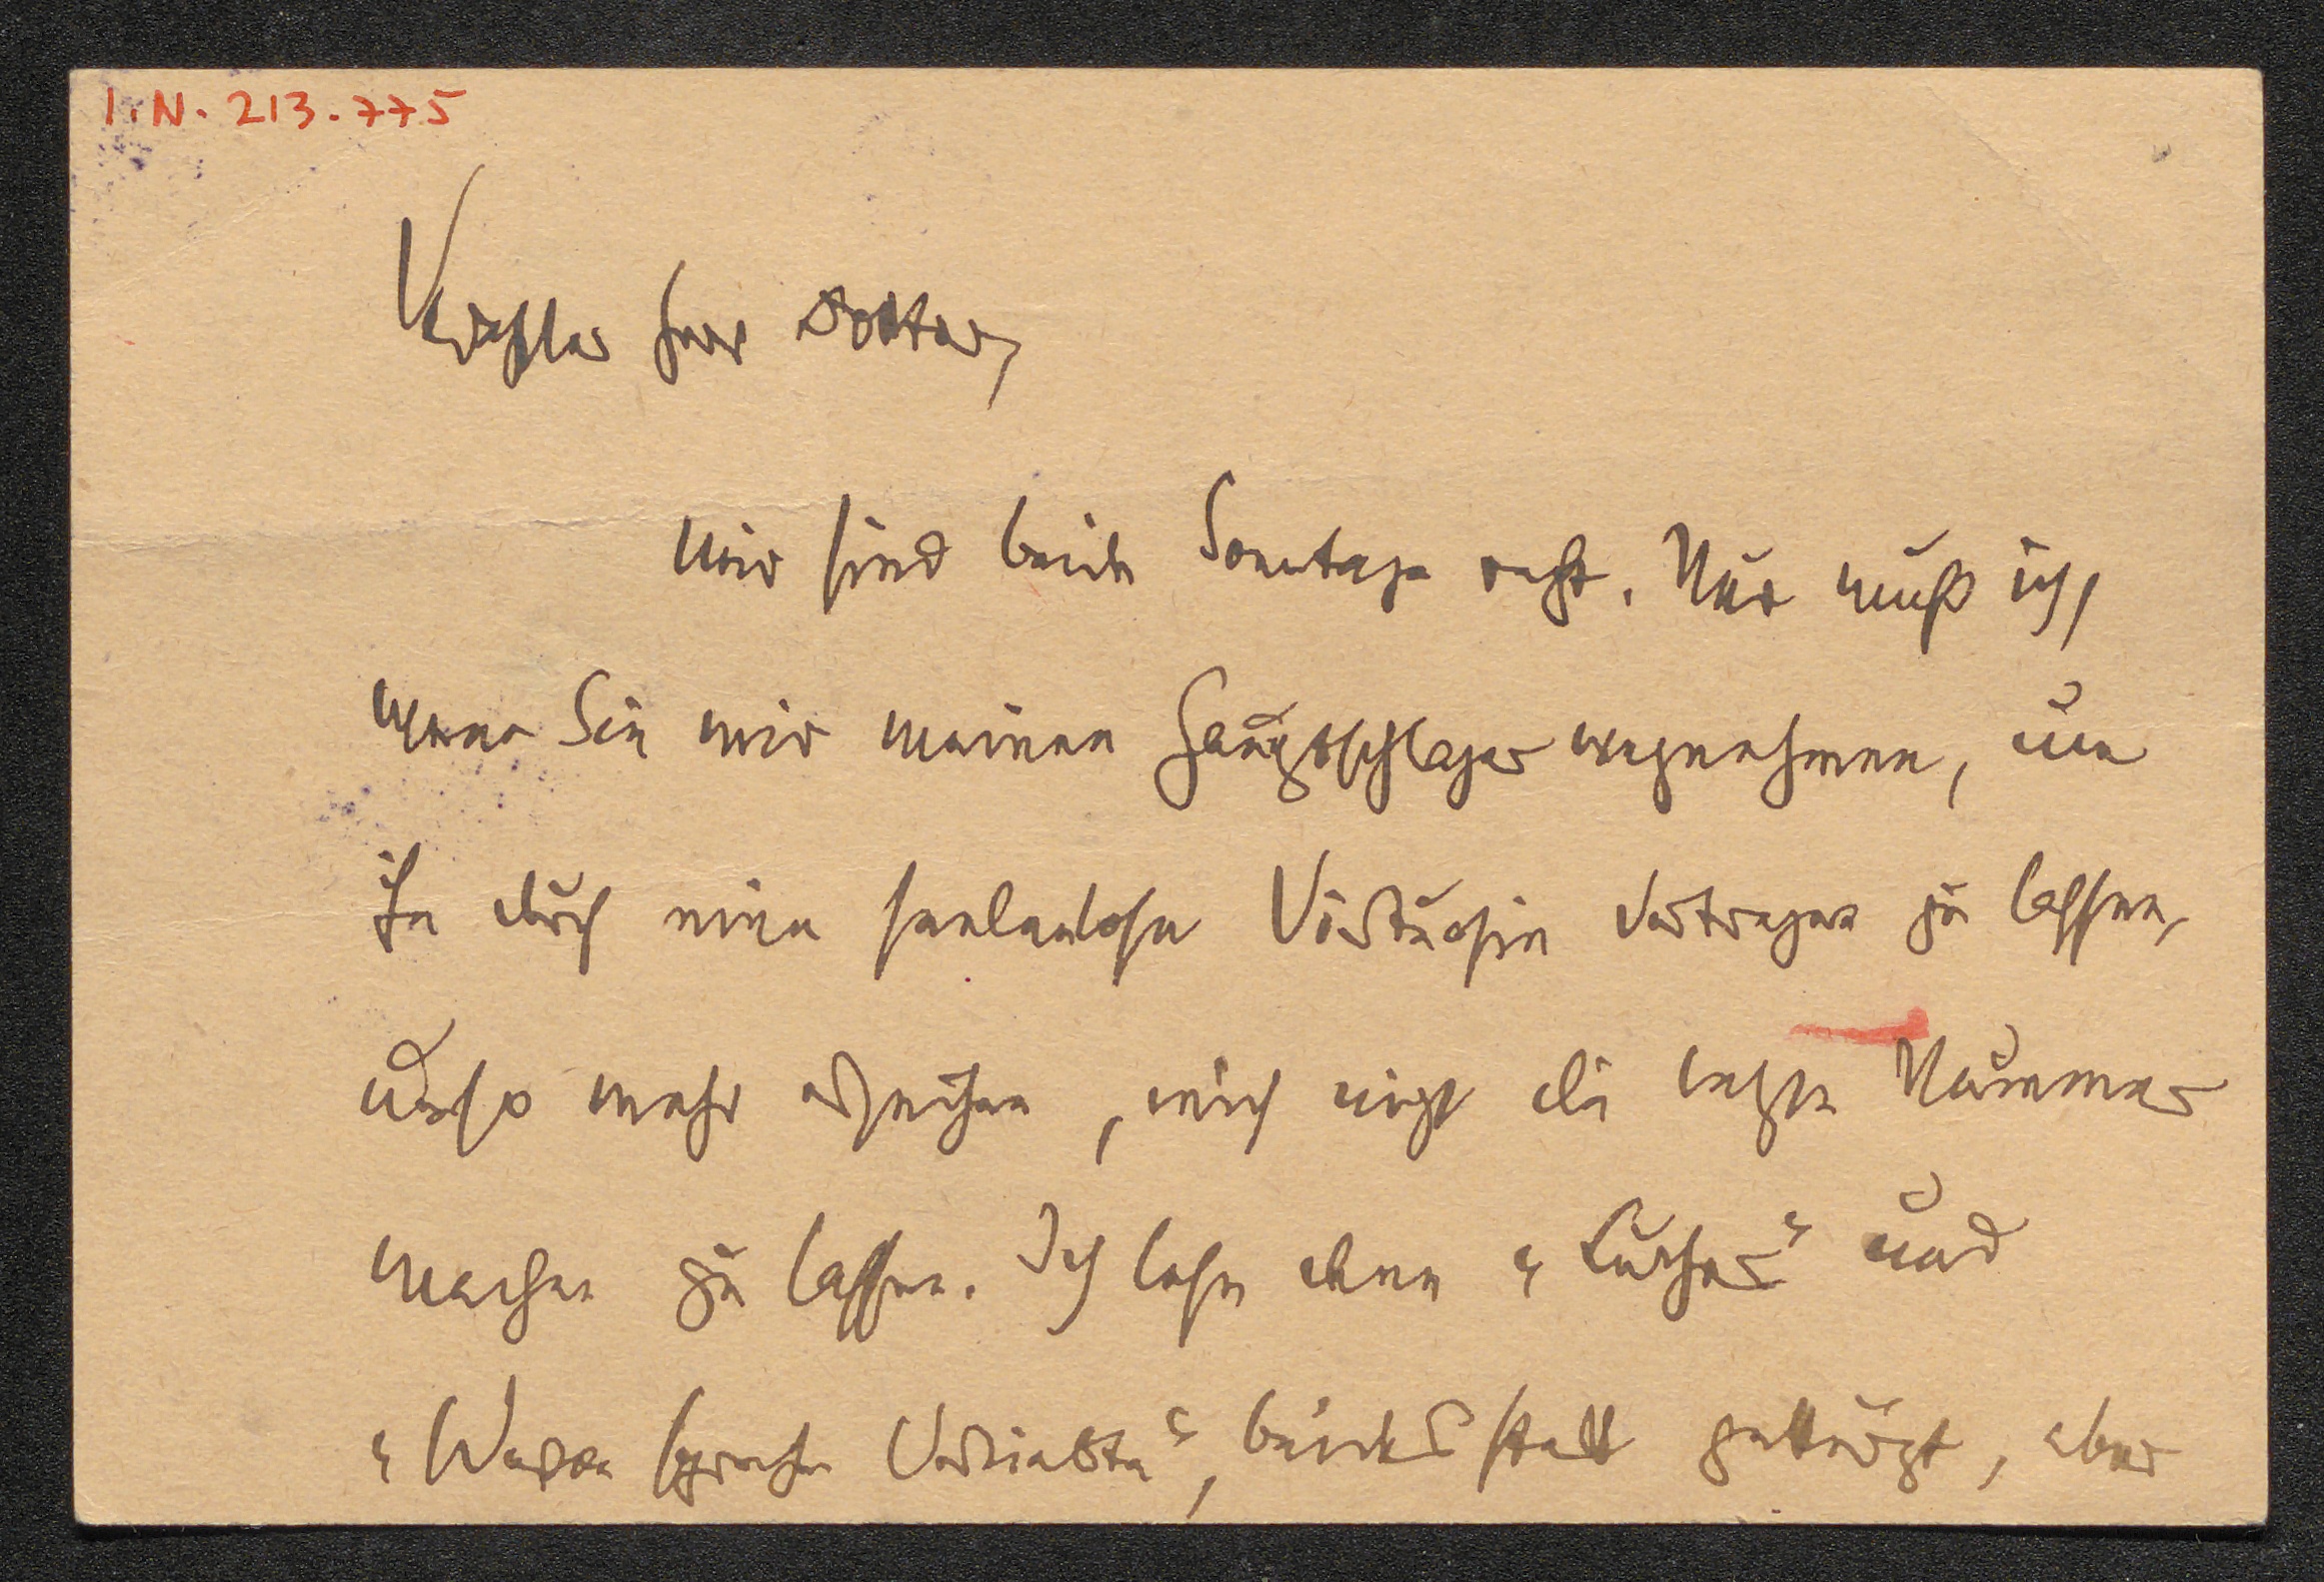 I.N. 213.775
Verehrter Herr Doktor,
mir sind beide Sonntage recht. Nur muß ich,
wenn Sie mir meinen Hauptschlager wegnehmen, um
ihn durch eine seelenlose Virtuosin vortragen zu lassen,
umso mehr ersuchen, mich nicht die letzte Nummer
machen zu lassen. Ich lese denn „Luther“ und
sprach, beides stark gekürzt, aber